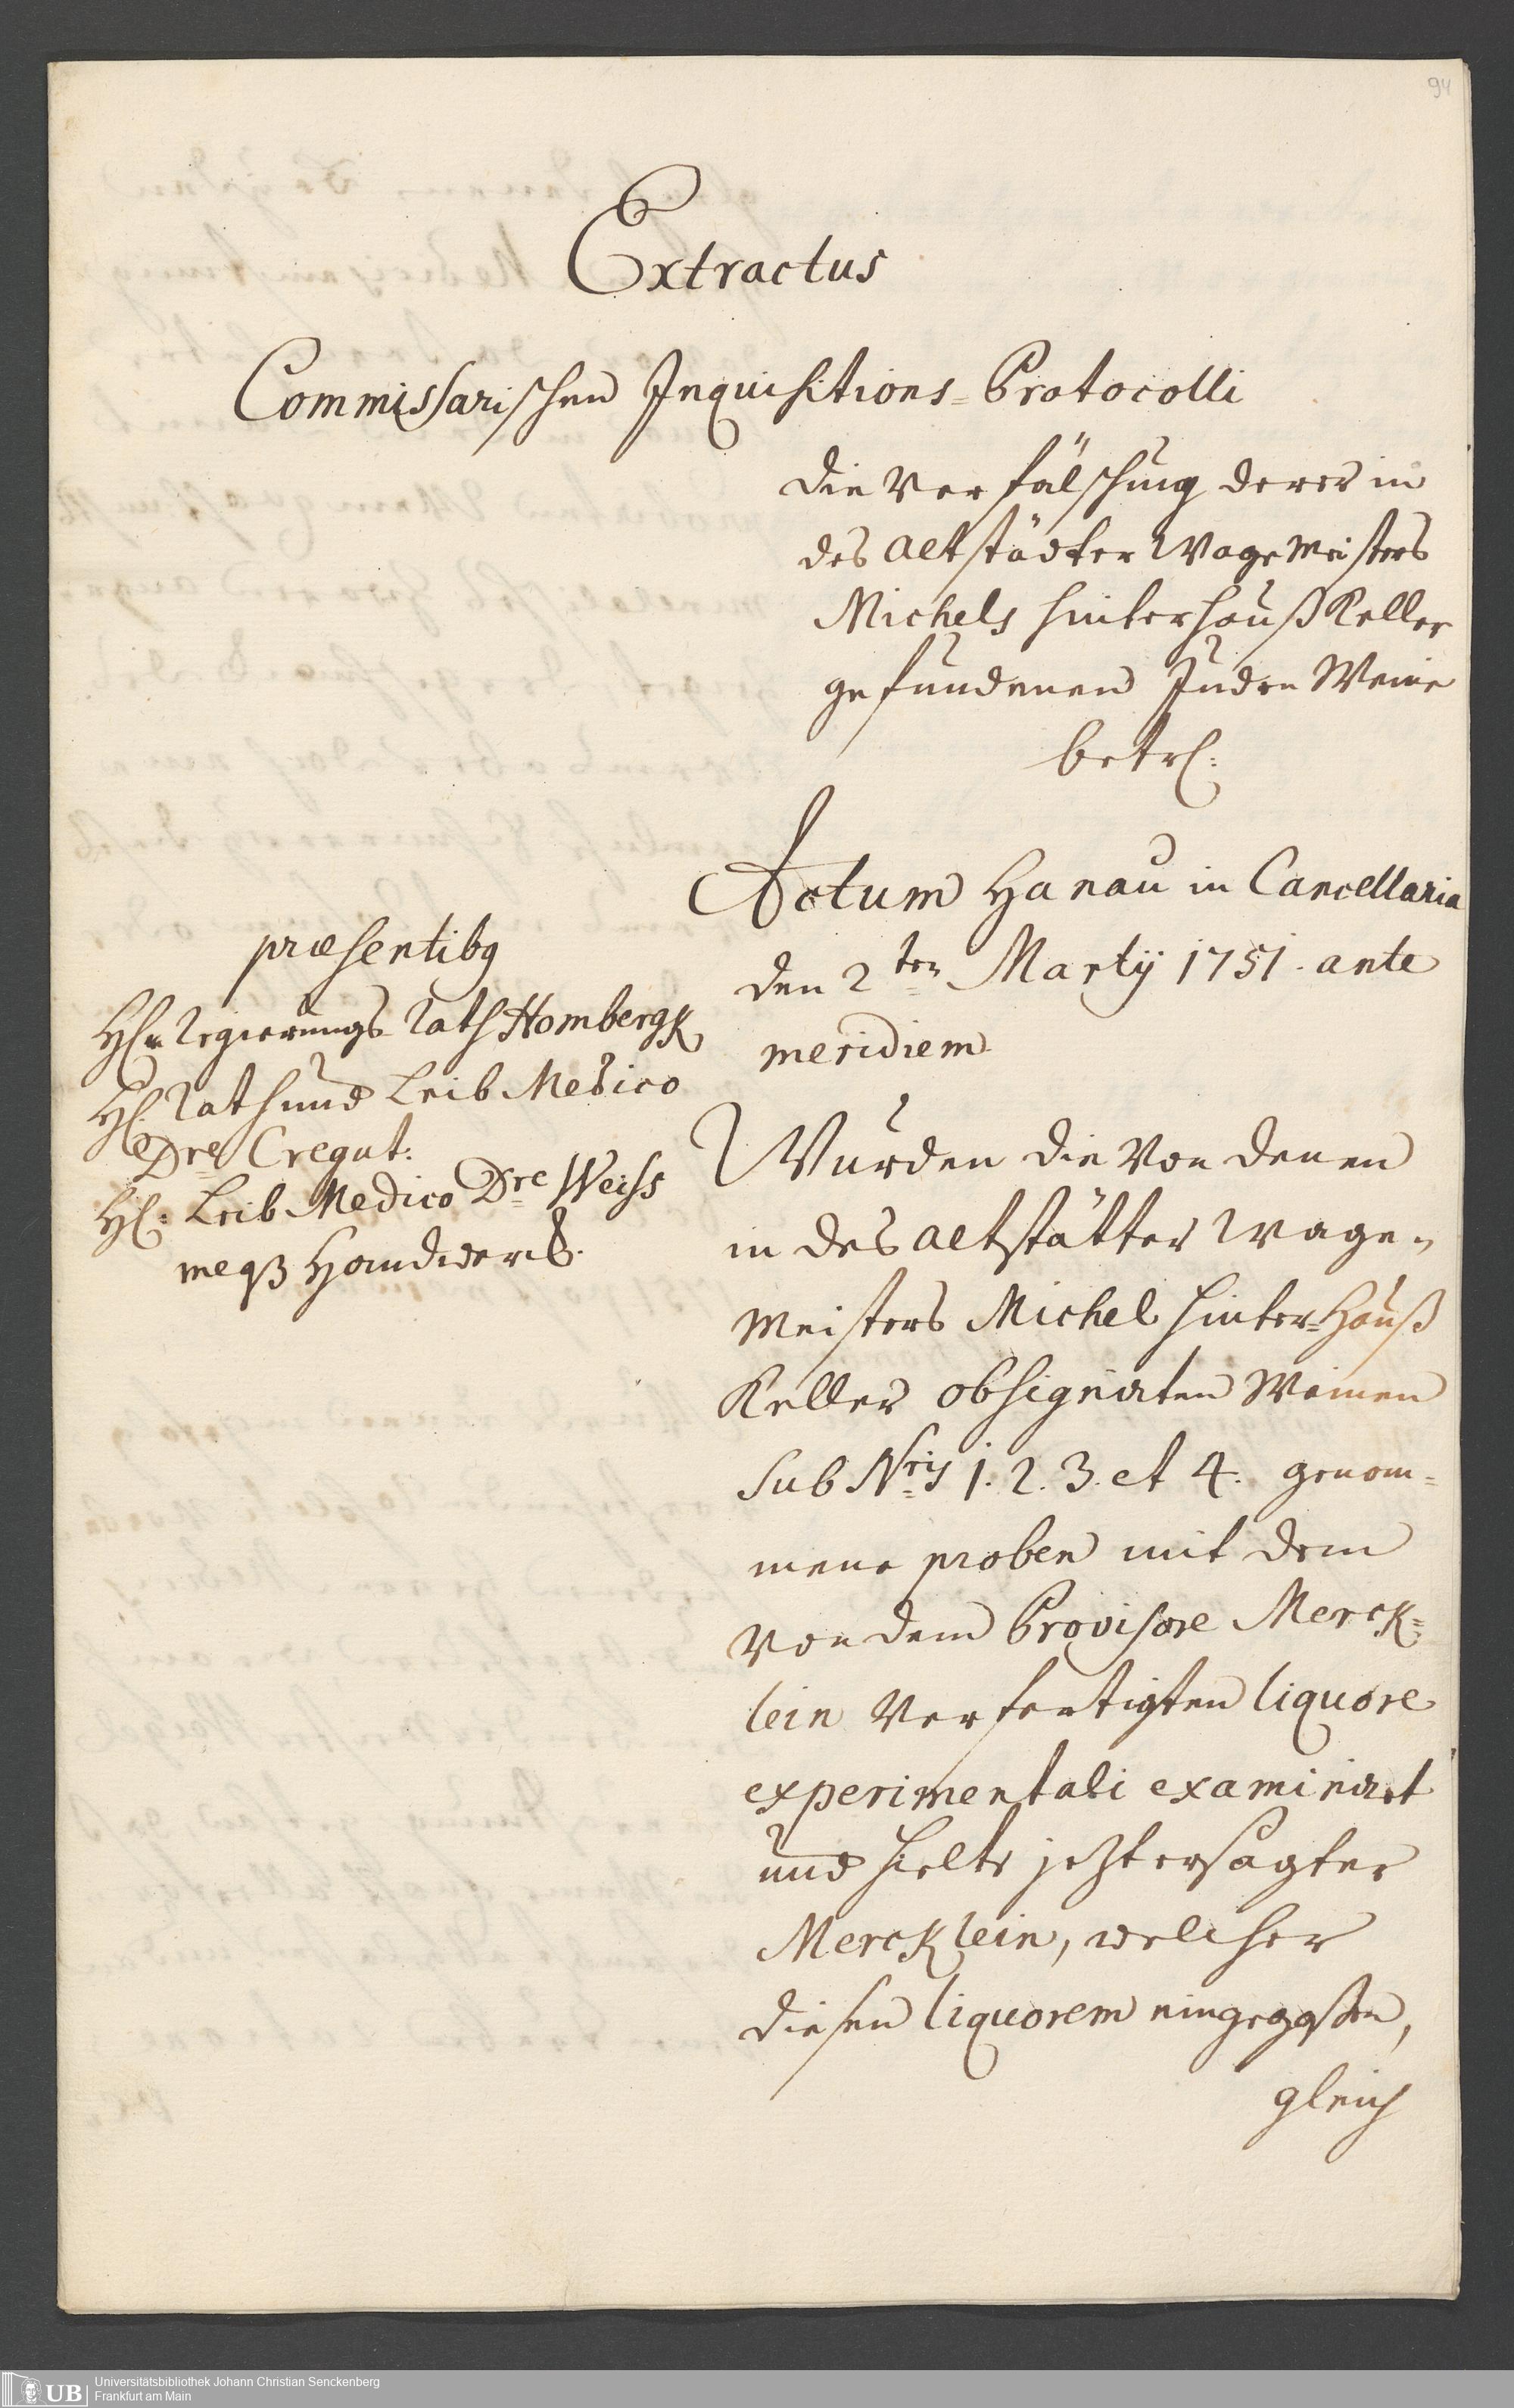 94
Extractus
Commissarischen Inquisitions-Protocolli
die Verfälschung derer in
des Altstädter Wagemeisters
Michels hinterhauß Keller
gefundenen Juden Weine
betrl:
Actum Hanau in Cancellaria
den 2ten Martij 1751. ante
meridiem
præsentibg
Hl. Regierungs Rath Hombergk
Hl. Rath und Leib Medico
Dre Cregut:
Hl: Leib Medico Dre Weiss
meqß
Wurden die von denen
in des Altstätter Wage-
meisters Michel hinter-Hauß
Keller obsignirten Weinen
sub Nris 1. 2. 3. et 4. genom-
mene proben mit dem
von dem Provisore Merck-
lein verfertigten liquore
experimentali examiniret
und hielte jetztersagter
Mercklein, welcher
diesen liquorem eingegoßen,
gleich
UB
Universitätsbibliothek Johann Christian Senckenberg
Frankfurt am Main